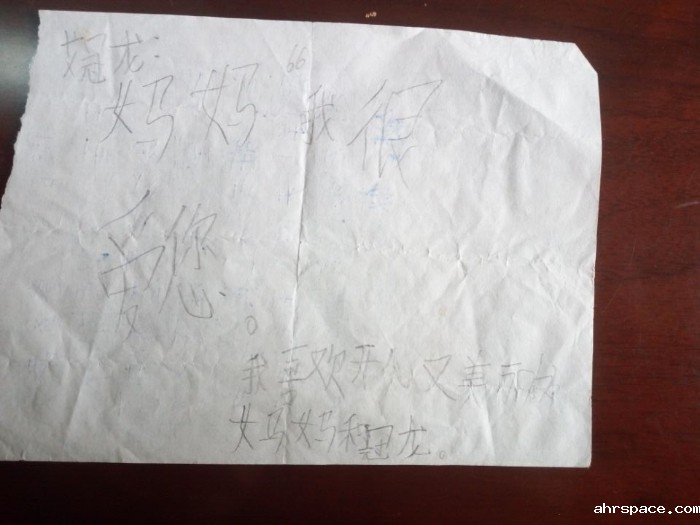 冠龙:
妈妈“我很
爱您。
我喜欢开心又美丽的
妈妈和冠龙。
ahrspace.com